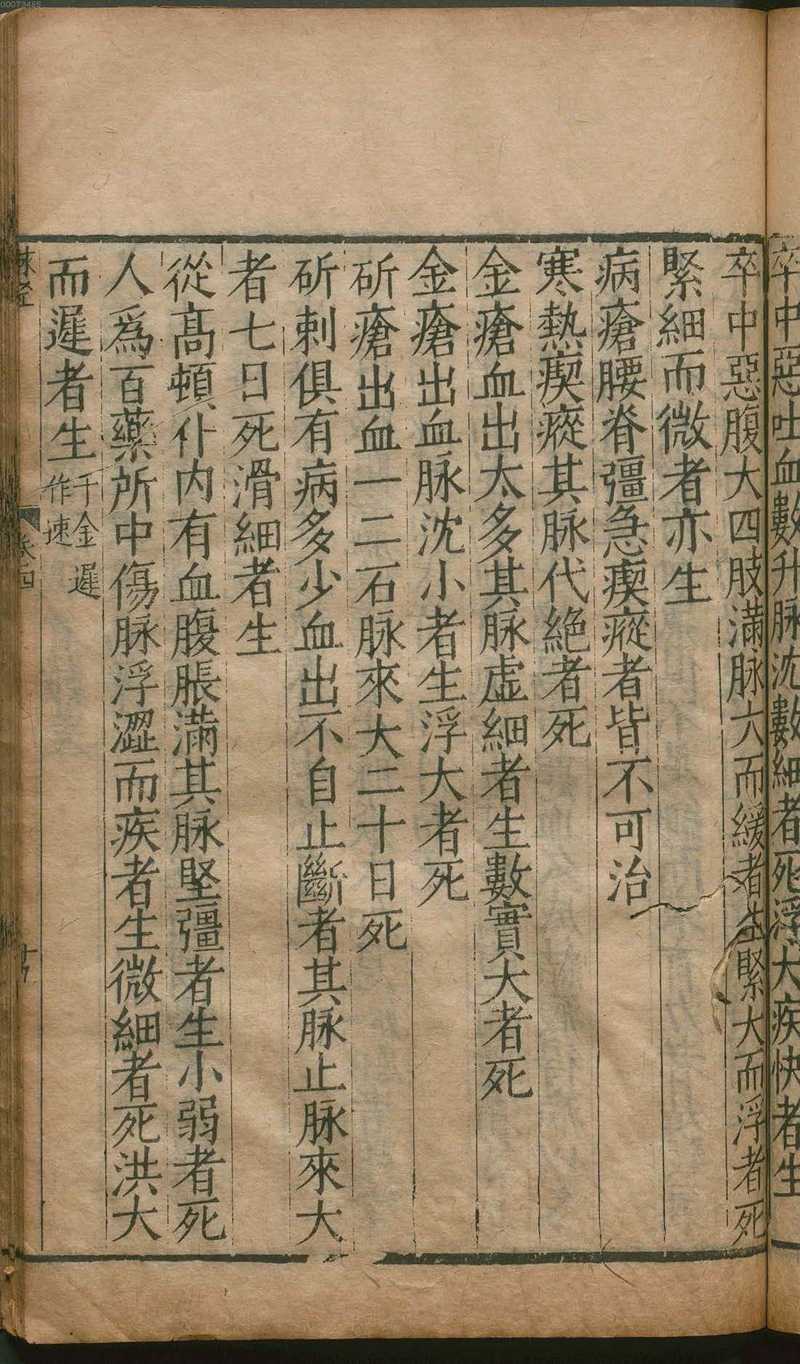 卒中惡吐血數升脉沈數細者死浮大疾快者生
卒中惡腹大四肢滿脉大而緩者生緊大而浮者死
緊細而微者亦生
病瘡腰脊彊急瘈瘲者皆不可治
寒熱瘈瘲其脉代絶者死
金瘡血出太多其脉虛細者生數實大者死
金瘡出血脉沈小者生浮大者死
斫瘡出血一二石脉來大二十日死
斫刺俱有病多少血出不自止斷者其脉止脉來大
者七日死滑細者生
從髙頓仆内有血腹脹滿其脉堅彊者生小弱者死
人爲百藥所中傷脉浮澀而疾者生微細者死洪大
而遲者生千金遲作速
脉經
卷四
00073485